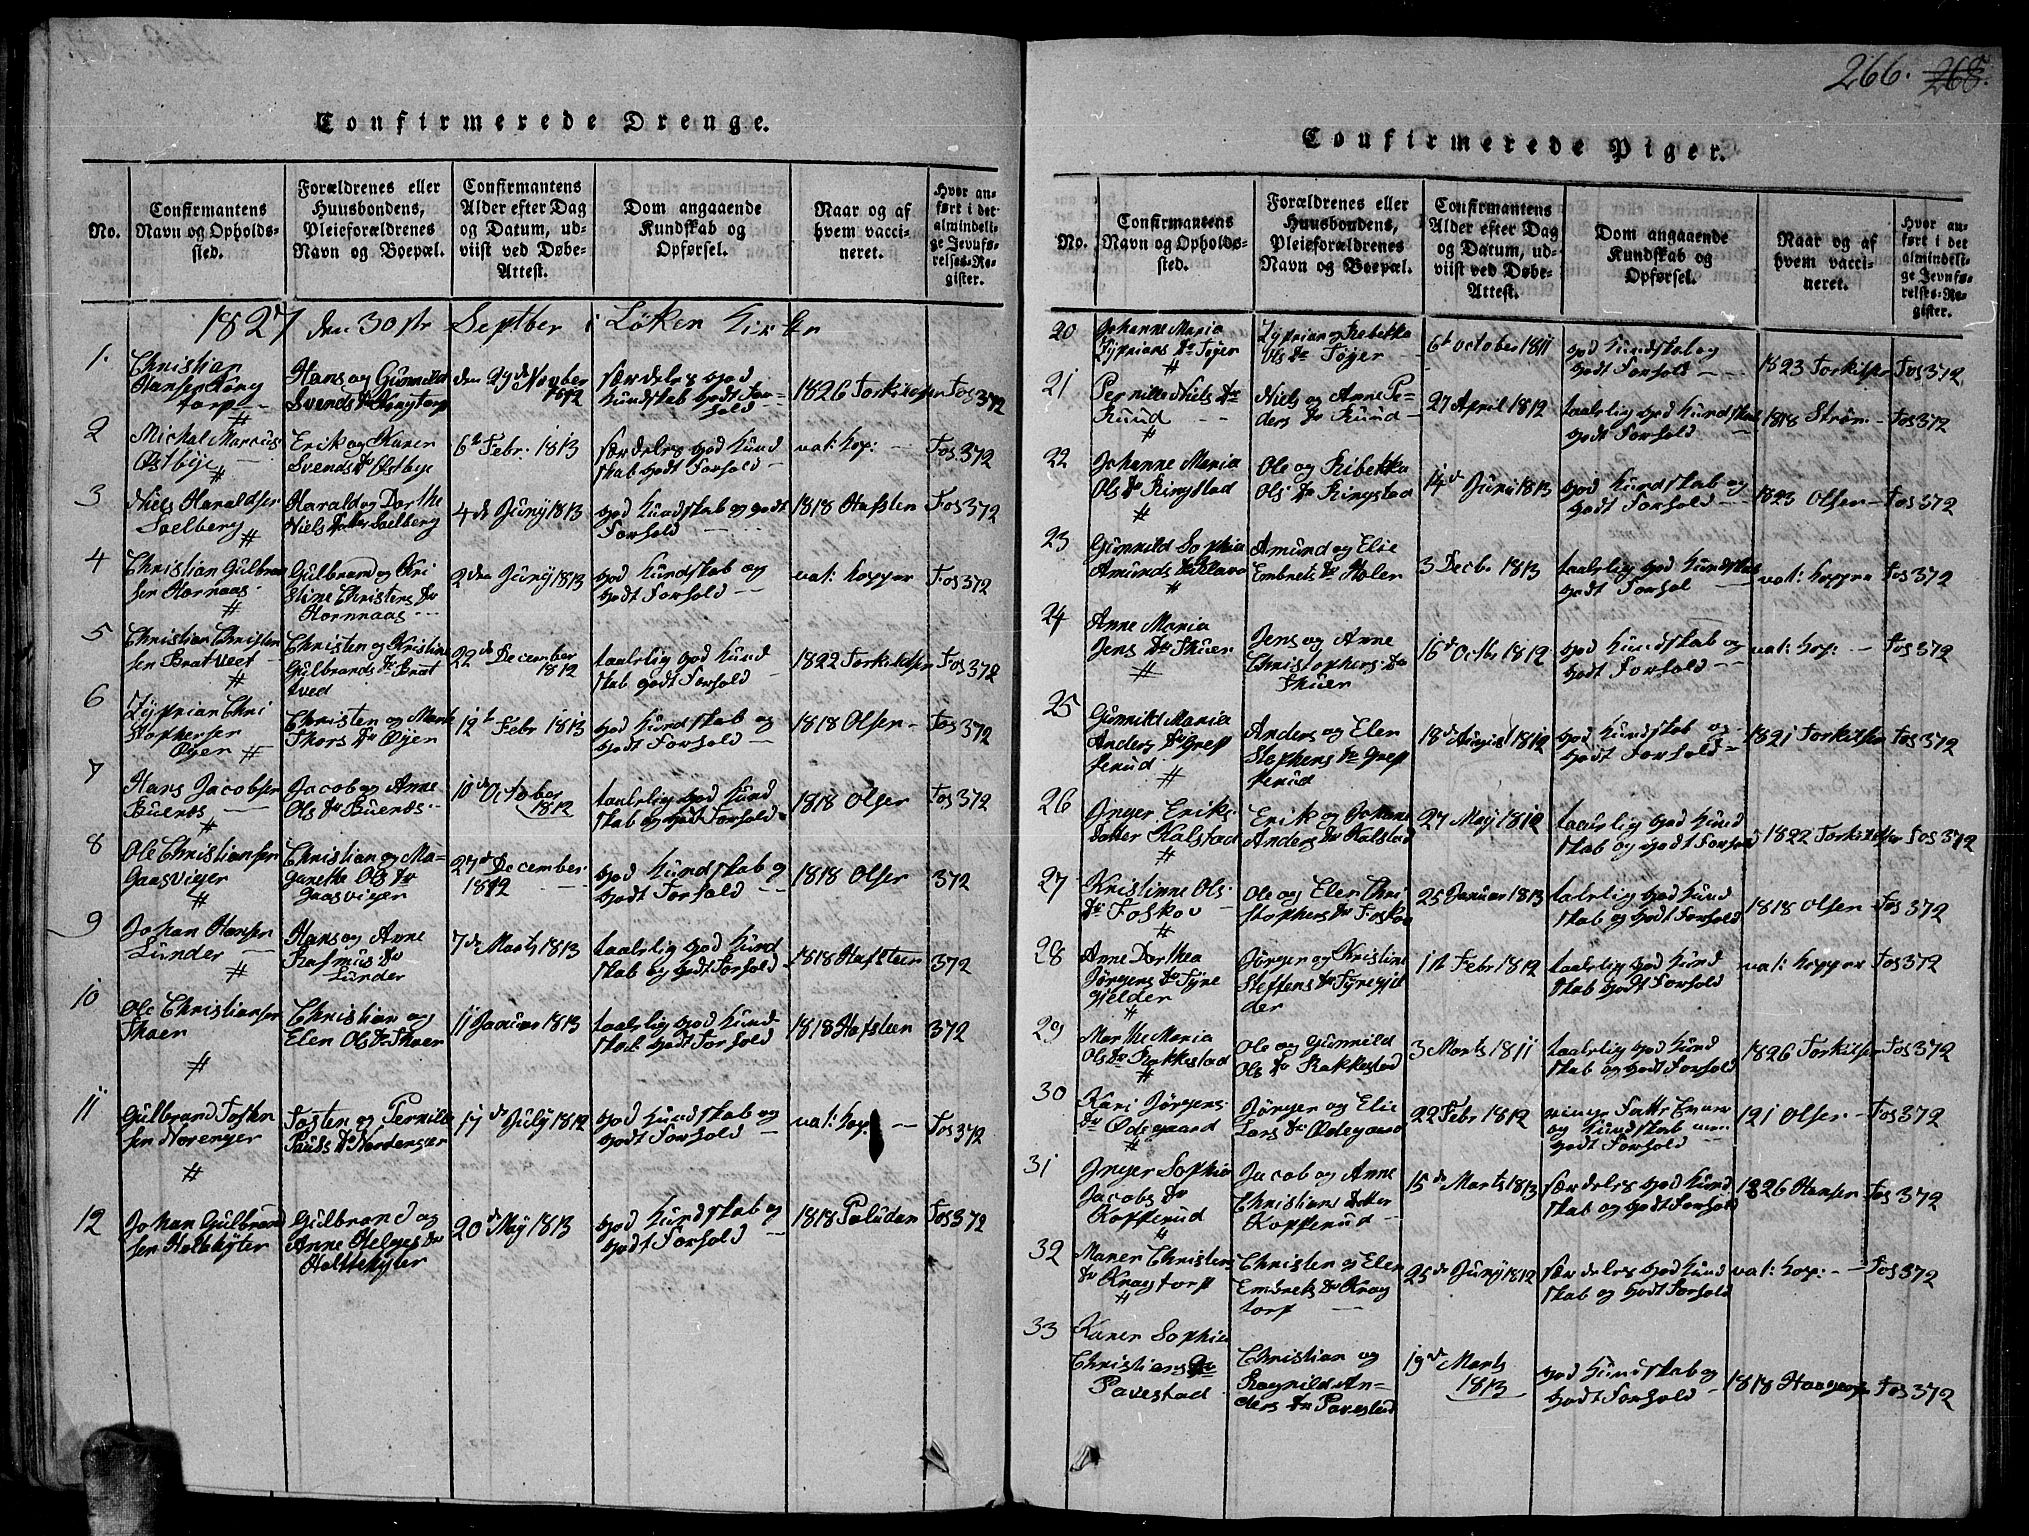 Confirmerede Drenge.
No.
Confirmantens
Navn og Opholds-
sted.
Forældrenes eller
Huusbondens,
Pleieforældrenes
Navn og Boepæl.
Confirmantens
Alder efter Dag
og Datum, ud-
viist ved Døbe-
Attest.
Dom angaaende
Kundskab og
Opførsel.
Naar og af
hvem vacci-
neret.
Hvor an-
ført i det
almindeli-
ge Jevnfø-
relses-Re-
gister.
1827 den 30str Septber i Löken Kirke
1.
Christian
Hansen Krog
torp
Hans og Gunnild
Svends Dr Krogtorp
den 29de Novber
1812
særdeles god
Kundskab godt For-
hold
1826 Torkildsen
Fos 372
2
Michal Marcus
Østbye
Erik og Karen
Svends Dr Østbye
6te Febr. 1813
særdeles god Kund
skab godt Forhold
nat: Kop:
Fos. 372
3
Niels Haraldsen
Soelberg
Harald og Dorthe
Niels Datter Soelberg
4de Juny 1813
god Kundskab og godt
Forhold
1818 Hafsten
Fos 372
4
Christian Gulbran
sen Hornaas
Gulbrand og Kri
stine Christens Dr
Hornnaas
2den Juny 1813
god Kundskab og
godt Forhold
nat: Kopper
Fos 372
5
Christian Christen
sen Bratveet
Christen og Kristine
Gulbrands Dr Brat
tved
22de December
1812
taalelig god Kund
skab godt Forhold
1822 Torkildsen
Fos 372
6
Zyprian Chri
stophersen
Øyer
Christen og Marte
Thors Dr Øyer
12te Febr 1813
god Kundskab og
godt Forhold
1818 Olsen
Fos 372
7
Hans Jacobsen
Buenæs
Jacob og Anne
Ols Dr Buenæs
10de October
1812
taalelig god Kund
skab og godt Forhold
1818 Olsen
Fos 372
8
Ole Christiansen
Gaasvigen
Christian og Ma-
ganethe Ols Dr
Gaasvigen
27de December
1812
god Kundskab og
godt Forhold
1818 Olsen
372
9
Johan Hansen
Lunder
Hans og Anne
Rasmus Dr
Lunder
7de Marts 1813
taalelig god Kund
skab og godt Forhold
1818 Hafsteen
372
10
Ole Christiansen
Skaer
Christian og
Elen Ols Dr Skaer
11 Januar 1813
taalelig god Kund-
skab godt Forhold
1818 Hafsteen
372
11
Gulbrand Tosten
sen Norenger
Tosten og Pernille
Pouls Dr Nordenger
17de July 1812
god Kundskab og
godt Forhold
nat: Kop:
Fos 372
12
Johan Gulbrand
sen Holtekyter
Gulbrand og
Anne Helges Dr
Holttekyter
20de May 1813
god Kundskab og
godt Forhold
1818 Paludan
Fos 372
266. 268.
Confirmerede Piger.
No.
Confirmantens
Navn og Opholds-
sted.
Forældrenes eller
Huusbondens,
Pleieforældrenes
Navn og Boepæl.
Confirmantens
Alder efter Dag
og Datum, ud-
viist ved Døbe-
Attest.
Dom angaaende
Kundskab og
Opførsel.
Naar og af
hvem vacci-
neret.
Hvor an-
ført i det
almindeli-
ge Jevnfø-
relses-Re-
gister.
20
Johanne Maria
Zyprians Dr Töyer
Zyprian og Rebekka
Ols Dr Töyer
6te October 1811
god Kundskab og
godt Forhold
1823 Torkilsen
Fos 372
21
Pernille Niels Dr
Ruud
Niels og Anne Pe-
ders Dr Ruud
27 April 1812
taalelig god Kundskab
godt Forhold
1818 Ström
Fos 372
22
Johanne Maria
Ols Dr Ringstad
Ole og Ribekka
Ols Dr Ringstad
14de Juni 1813
god Kundskab og
godt Forhold
1823 Olsen
Fos 372
23
Gunnild Sophia
Amunds
Amund og Elie
Embrets Dr Holen
3 Decb. 1813
taalelig god Kundskab
godt Forhol
nat: Koppra
Fos 372
24
Anne Maria
Jens Dr Skuer
Jens og Anne
Christophers Dr
Skuer
16de Octbr 1812
god Kundskab og
godt Forhold
nat: Kop:
Fos 372
25
Gunnild Maria
Anders Dr Gref
serud
Anders og Elen
Stephens Dr Gref
serud
18de August 1812
god Kundskab og
godt Forhold
1821 Torkilsen
Fos 372
26
Inger Eriks
datter Kalstad
Erik og Johane
Anders Dr Kalstad
27 May 1812
taalelig god Kund
skab og godt Forhold
1822 Torkildsen
Fos 372
27
Kristinne Ols
Dr Foskov
Ole og Elen Chri
stophers Dr Foskov
25 Januar 1813
taalelig god Kund
skab og godt Forhold
1818 Olsen
Fos 372
28
Anne Dorthea
Jörgens Dr Tyre
gjelder
Jörgen og Kristine
Steffens Dr Tyregjel
der
11te Febr 1812
taalelig god Kund
skab godt Forhold
nat: Kopper
Fos 372
29
Marthe Maria
Ols Dr Rakkestad
Ole og Gunnild
Ols Dr Rakkestad
3 Marts 1811
taalelig god Kund
skab og godt Forhold
1826 Torkilsen
Fos 372
30
Kari Jörgens
Dr Ødegaard
Jörgen og Elie
Lars Dr Ødegaard
22 Febr 1812
ringe Fatte Evne
og Kundskab men
godt Forhold
121 Olsen
Fos 372
31
Inger Sophia
Jacobs Dr
Kopperud
Jacob og Anne
Christians Datter
Kopperud
15de Marts 1813
særdeles god Kund
skab og godt Forhold
1826 Hansen
Fos 372
32
Maren Christens
Dr Krogtorp
Christen og Elen
Embrets Dr Krog
torp
25de Juny 1812
særdeles god Kund
skab og godt Forhold
nat: Kop:
Fos 372
33
Karen Sophia
Christians Dr
Pavestad
Christian og
Ragnild An-
ders Dr Pavestad
19de Marts
1813
god Kundskab og
godt Forhold
1818
Fos 372